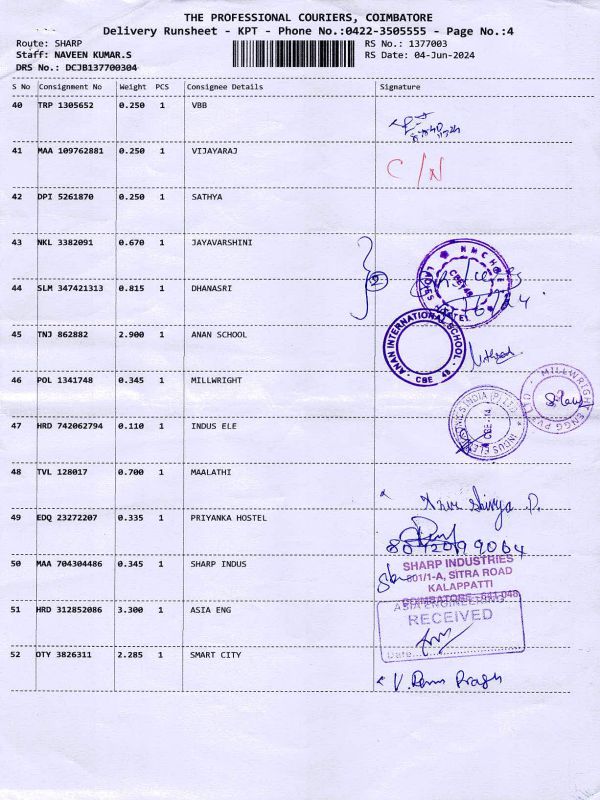 THE PROFESSIONAL COURIERS, COIMBATORE
Delivery Runsheet - KPT - Phone No.:0422-3505555 - Page No.:4
Route: SHARP
Staff: NAVEEN KUMAR.S
DRS No.: DCJB137700304
RS No.: 1377003
RS Date: 04-Jun-2024
S No Consignment No Weight PCS Consignee Details Signature
40 TRP 1305652 0.250 1 VBB
41 MAA 109762881 0.250 1 VIJAYARAJ C/N
42 DPI 5261870 0.250 1 SATHYA
43 NKL 3382091 0.670 1 JAYAVARSHINI
44 SLM 347421313 0.815 1 DHANASRI
LADIES
45 TNJ 862882 2.900 1 ANAN SCHOOL
ANAN INTERNATIONAL SCHOOL
CBE - 48
46 POL 1341748 0.345 1 MILLWRIGHT
MILLWRIGHT ENGG PVT LTD
47 HRD 742062794 0.110 1 INDUS ELE
CBE-14
48 TVL 128017 0.700 1 MAALATHI
49 EDQ 23272207 0.335 1 PRIYANKA HOSTEL
50 MAA 704304486 0.345 1 SHARP INDUS
SHARP INDUSTRIES
601/1-A, SITRA ROAD
KALAPPATTI
COIMBATORE - 641 048
51 HRD 312852086 3.300 1 ASIA ENG
ASIA ENGINEERING
RECEIVED
Date
52 OTY 3826311 2.285 1 SMART CITY